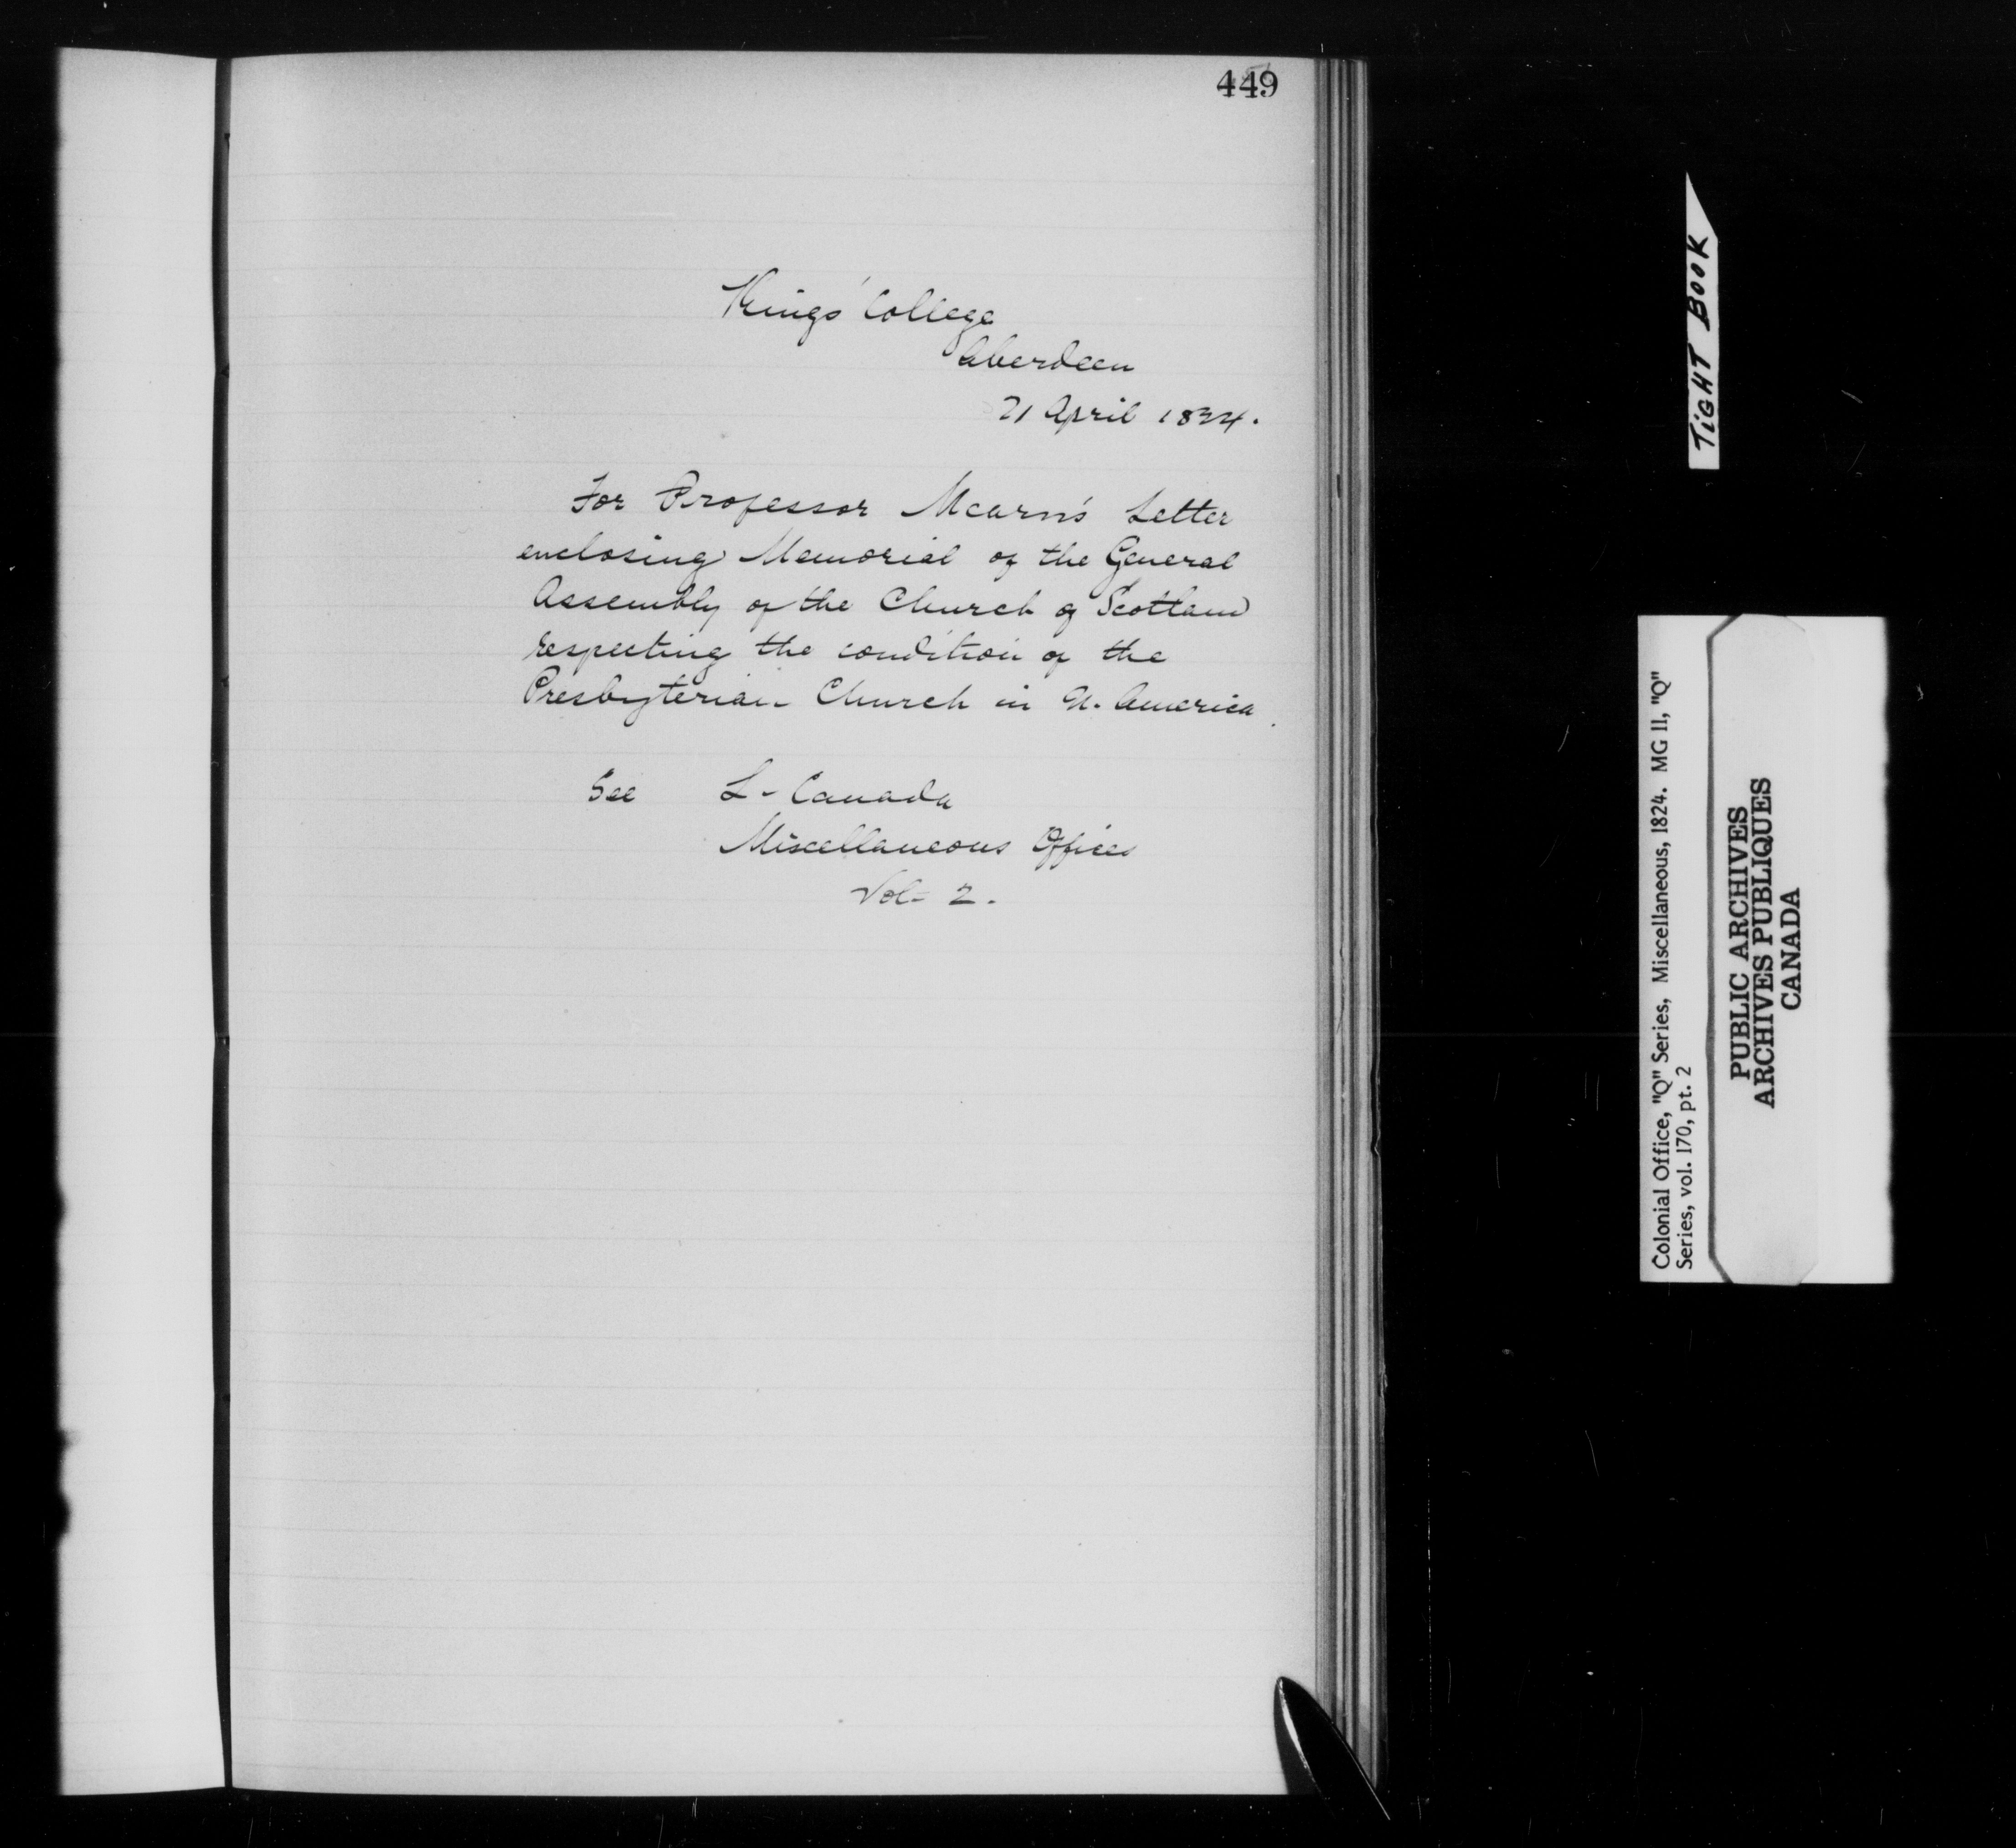 449
Kings' College
Aberdeen
21 April 1824.
For Professor Mearn's Letter
enclosing Memorial of the General
Assembly of the Church of Scotland
respecting the condition of the
Presbyterian Church in N. America.
See L- Canada
Miscellaneous Offices
Vol= 2.
TIGHT BOOK
Colonial Office, "Q" Series, Miscellaneous, 1824. MG 11, "Q"
Series, vol. 170, pt. 2
PUBLIC ARCHIVES
ARCHIVES PUBLIQUES
CANADA